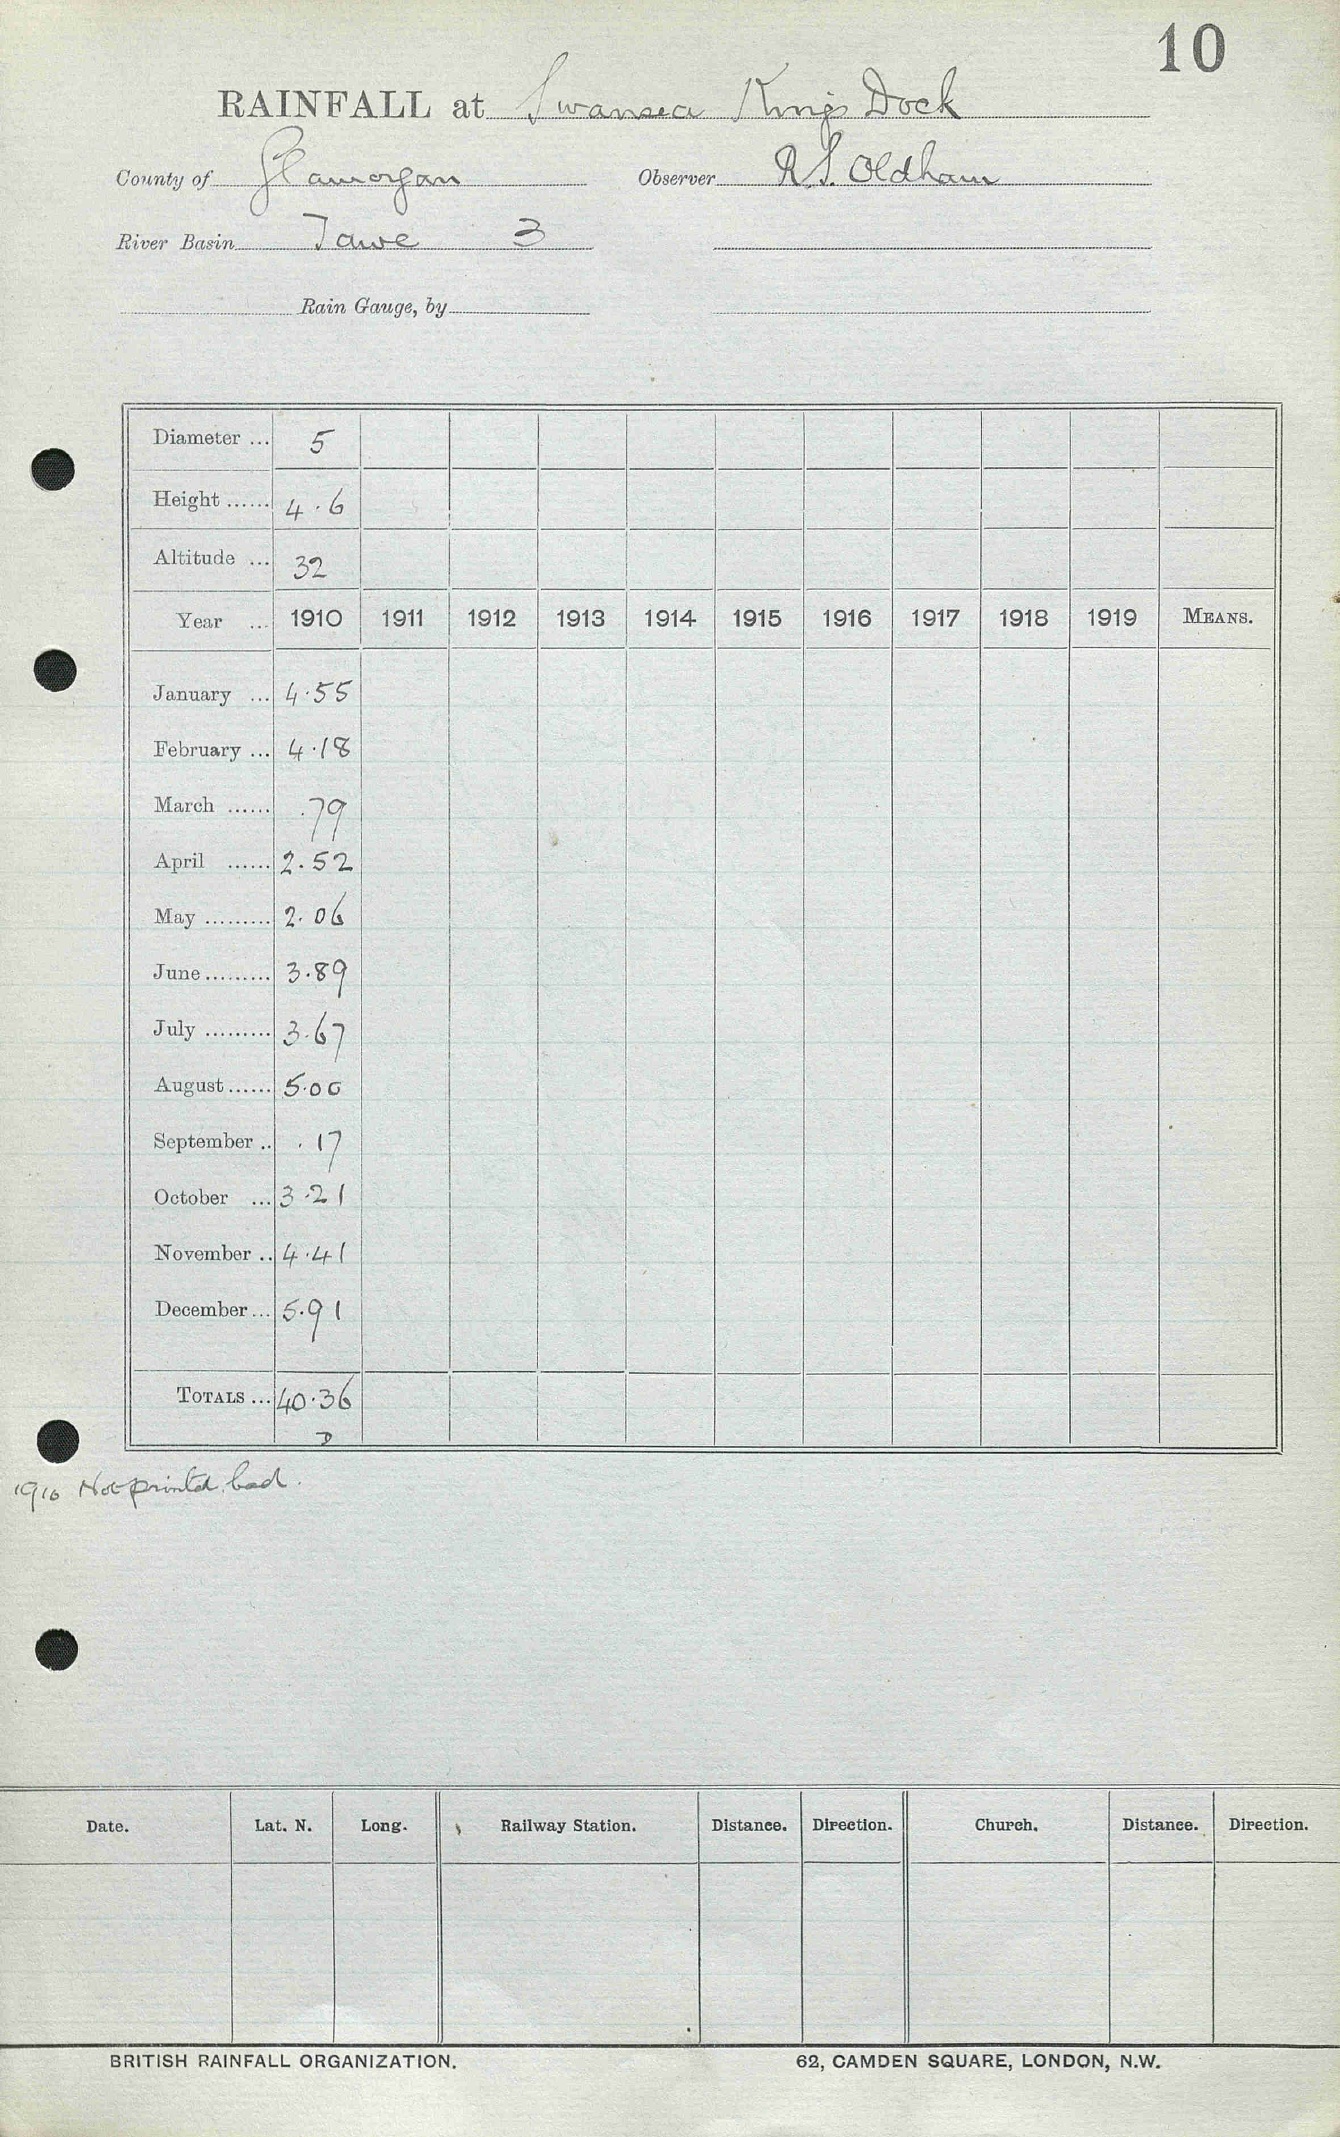 10
RAINFALL at Swansea Kings Dock
County of Glamorgan Observer R.S. Oldham
River Basin Tawe 3
Rain Gauge, by
Diameter ... 5
Height ...... 4.6
Altitude ... 32
Year ... 1910 1911 1912 1913 1914 1915 1916 1917 1918 1919 MEANS.
January ... 4.55
February ... 4.18
March ...... .79
April ...... 2.52
May ......... 2.06
June ......... 3.89
July ......... 3.67
August ...... 5.00
September .. .17
October ... 3.21
November .. 4.41
December ... 5.91
TOTALS ... 40.36
D
1910 Not printed. bad.
Date. Lat. N. Long. Railway Station. Distance. Direction. Church. Distance. Direction.
BRITISH RAINFALL ORGANIZATION. 62, CAMDEN SQUARE, LONDON, N.W.